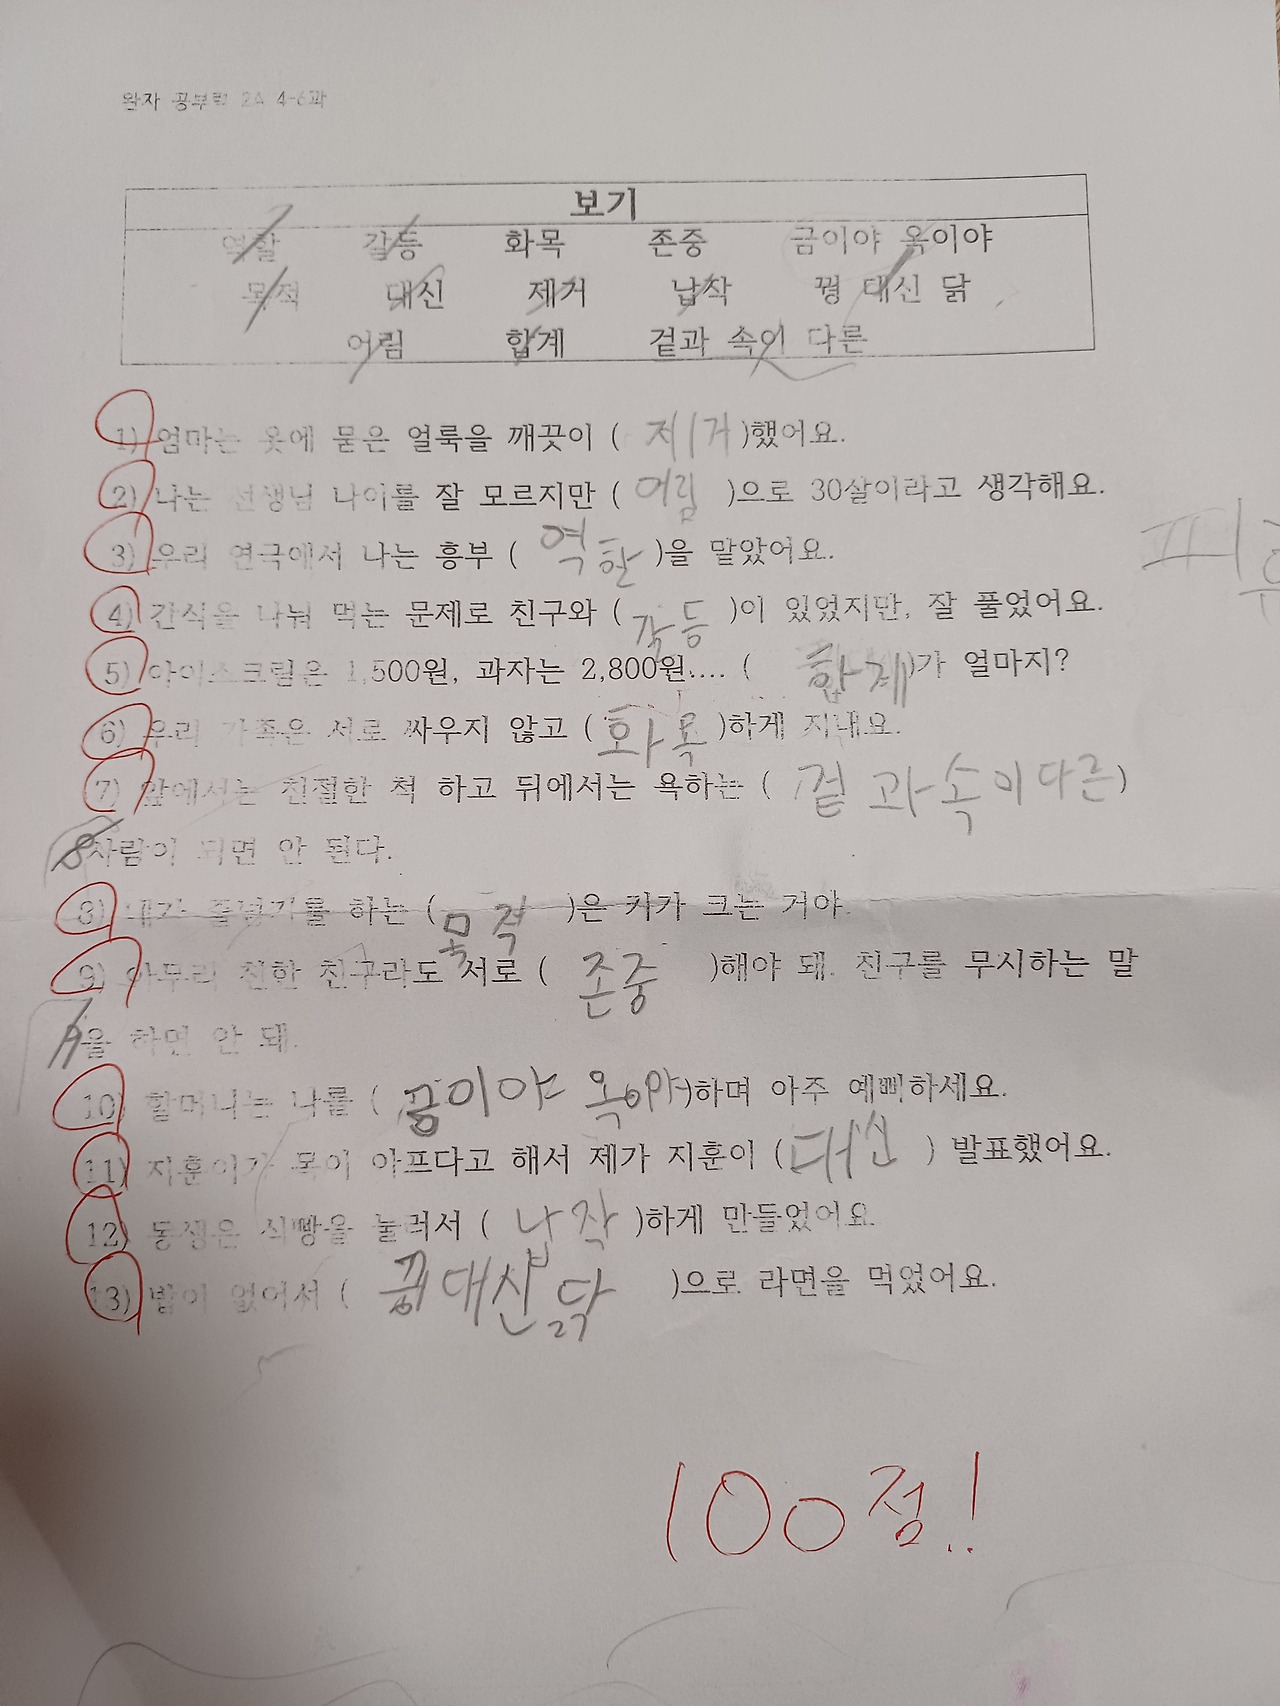 완자 공부력 2A 4-6과
보기
역할 갈등 화목 존중 금이야 옥이야
목적 대신 제거 납작 꿩 대신 닭
어림 합계 겉과 속이 다른
1) 엄마는 옷에 묻은 얼룩을 깨끗이 ( 제거 )했어요.
2) 나는 선생님 나이를 잘 모르지만 ( 어림 )으로 30살이라고 생각해요.
3) 우리 연극에서 나는 흥부 ( 역할 )을 맡았어요.
4) 간식을 나눠 먹는 문제로 친구와 ( 갈등 )이 있었지만, 잘 풀었어요.
5) 아이스크림은 1,500원, 과자는 2,800원.... ( 합계 )가 얼마지?
6) 우리 가족은 서로 싸우지 않고 ( 화목 )하게 지내요.
7) 앞에서는 친절한 척 하고 뒤에서는 욕하는 ( 겉과 속이 다른 )
사람이 되면 안 된다.
8) 내가 줄넘기를 하는 ( 목적 )은 키가 크는 거야.
9) 아무리 친한 친구라도 서로 ( 존중 )해야 돼. 친구를 무시하는 말
을 하면 안 돼.
10) 할머니는 나를 ( 금이야 옥이야 )하며 아주 예뻐하세요.
11) 지훈이가 목이 아프다고 해서 제가 지훈이 ( 대신 ) 발표했어요.
12) 동생은 식빵을 눌러서 ( 납작 )하게 만들었어요.
13) 밥이 없어서 ( 꿩대신 닭 )으로 라면을 먹었어요.
100점!